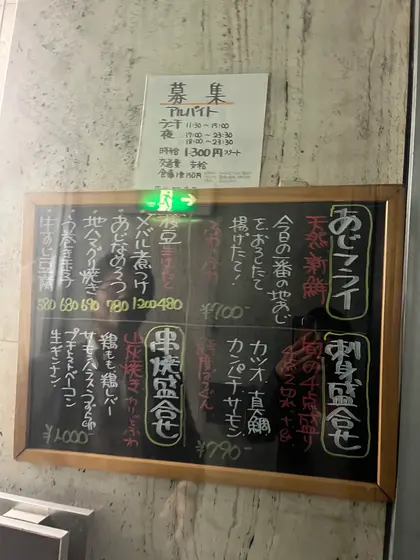 募集
アルバイト
ランチ 11:30~15:00
夜 17:00~23:30
18:00~23:30
時給 1,300円スタート
交通費 支給
食事1食150円
あじフライ
天然
今日一番の地あじ
を、おろしたて
揚げたて!
¥700-
刺身盛合せ
旬の4点盛り
カツオ 真鯛
カンパチ サーモン
¥790-
枝豆 480
メバル煮つけ 1200
あじなめろう 780
地ハマグリ焼き 690
うまき玉子 680
生のり豆腐 580
串焼盛合せ
炭焼き カリッとふわ
鶏もも 鶏レバー
サーモンハラス うずら
プチトマトベーコン
生ギンナン
¥1,000-